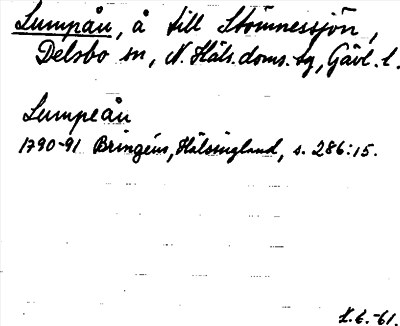 Lumpån, å till Stömnessjön,
Delsbo sn, N. Häls. doms.-sg, Gävl. l.
Lumpeån
1790-91 Bringéus, Hälsingland, s. 286:15.
-61.